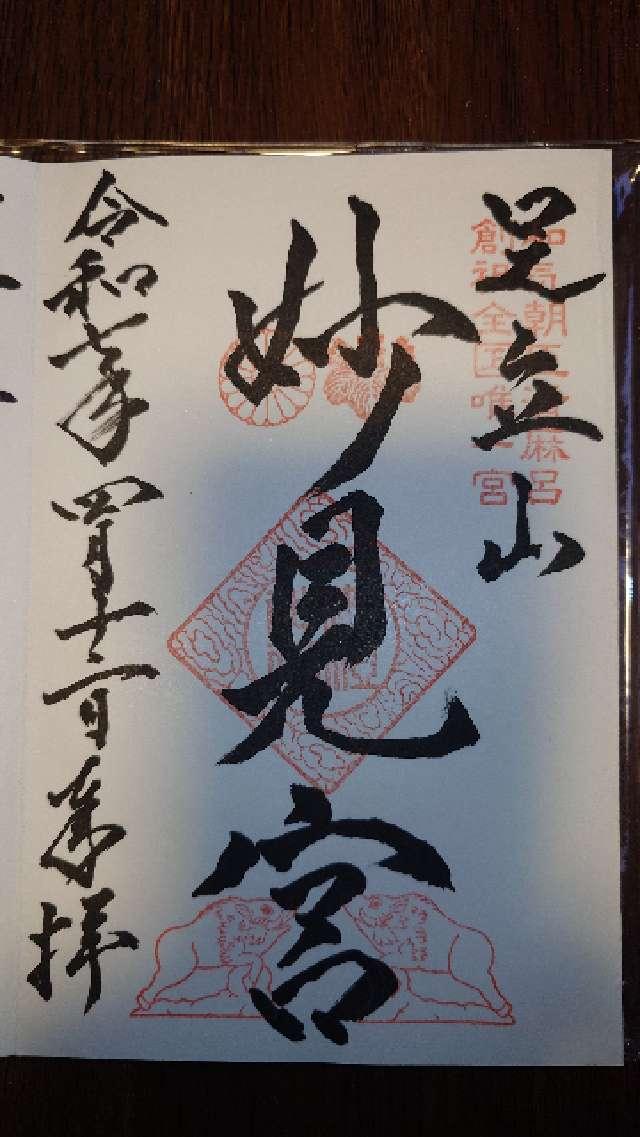 足立山
和気朝臣清麻呂
創祀全国唯一宮
妙見宮
令和七年四月十二日奉拝